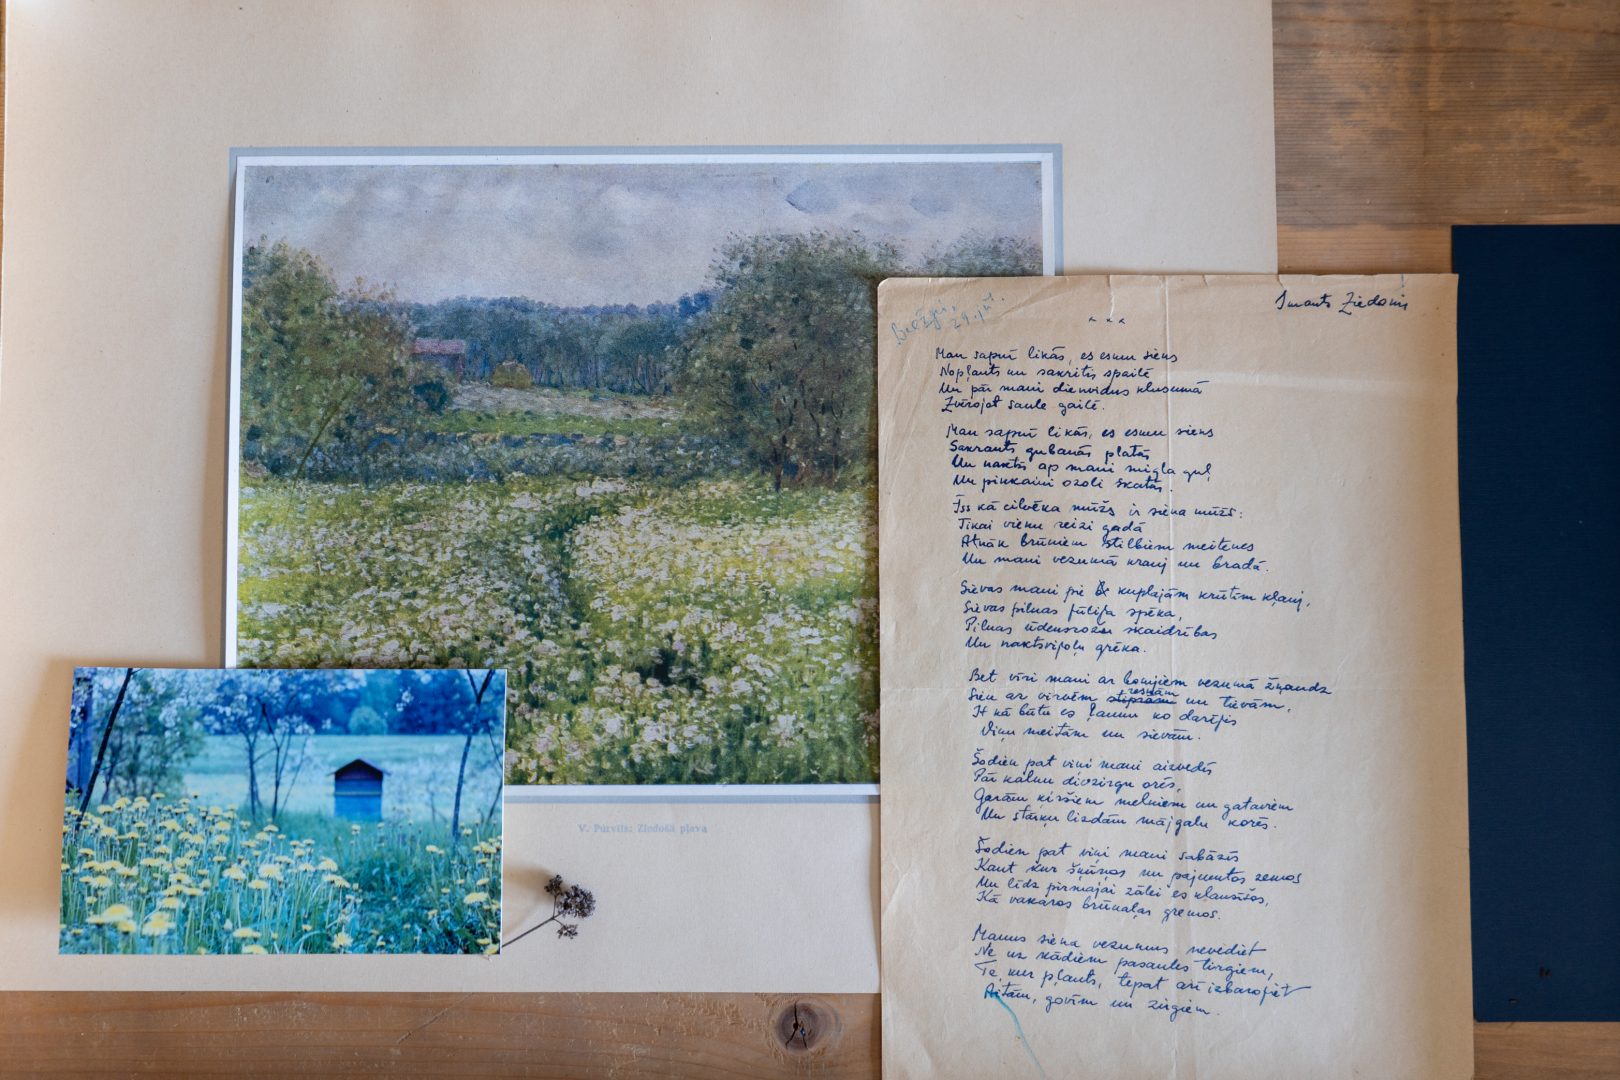 V. Purvīts: Ziedošā pļava
Imants Ziedonis
29. jūl.
* * *
Man sapnī likās, es esmu siens
Nopļauts un sakritis spailē
Un pār mani dienvidus klusumā
Zvērojot saule gailē.
Man sapnī likās, es esmu siens
Sakrauts gubanās platās
Un naktīs ap mani migla guļ
Un pinkaini ozoli skatās.
Īss kā cilvēka mūžs ir siena mūžs:
Tikai vienu reizi gadā
Atnāk brūniem stilbiem meitenes
Un mani vezumā krauj un bradā.
Sievas mani pie kuplajām krūtīm kļauj,
Sievas pilnas jūlija spēka,
Pilnas ūdensrožu skaidrības
Un naktsvijoļu grēka.
Bet vīri mani ar bomjiem vezumā žņaudz
Sien ar virvēm resnām un tievām,
It kā būtu es ļaunu ko darījis
Viņu meitām un sievām.
Šodien pat viņi mani aizvedīs
Pār kalnu divzirgu orēs,
Garām ķiršiem melniem un gataviem
Un stārķu lizdām mājgalu korēs.
Šodien pat viņi mani sabāzīs
Kaut kur šķūņos un pajumtos zemos
Un līdz pirmajai zālei es klausīšos,
Kā vakaros brūnaļas gremos.
Manus siena vezumus nevediet
Ne uz kādiem pasaules tirgiem,
Te, kur pļauts, tepat arī izbarojiet
Aitām, govīm un zirgiem.